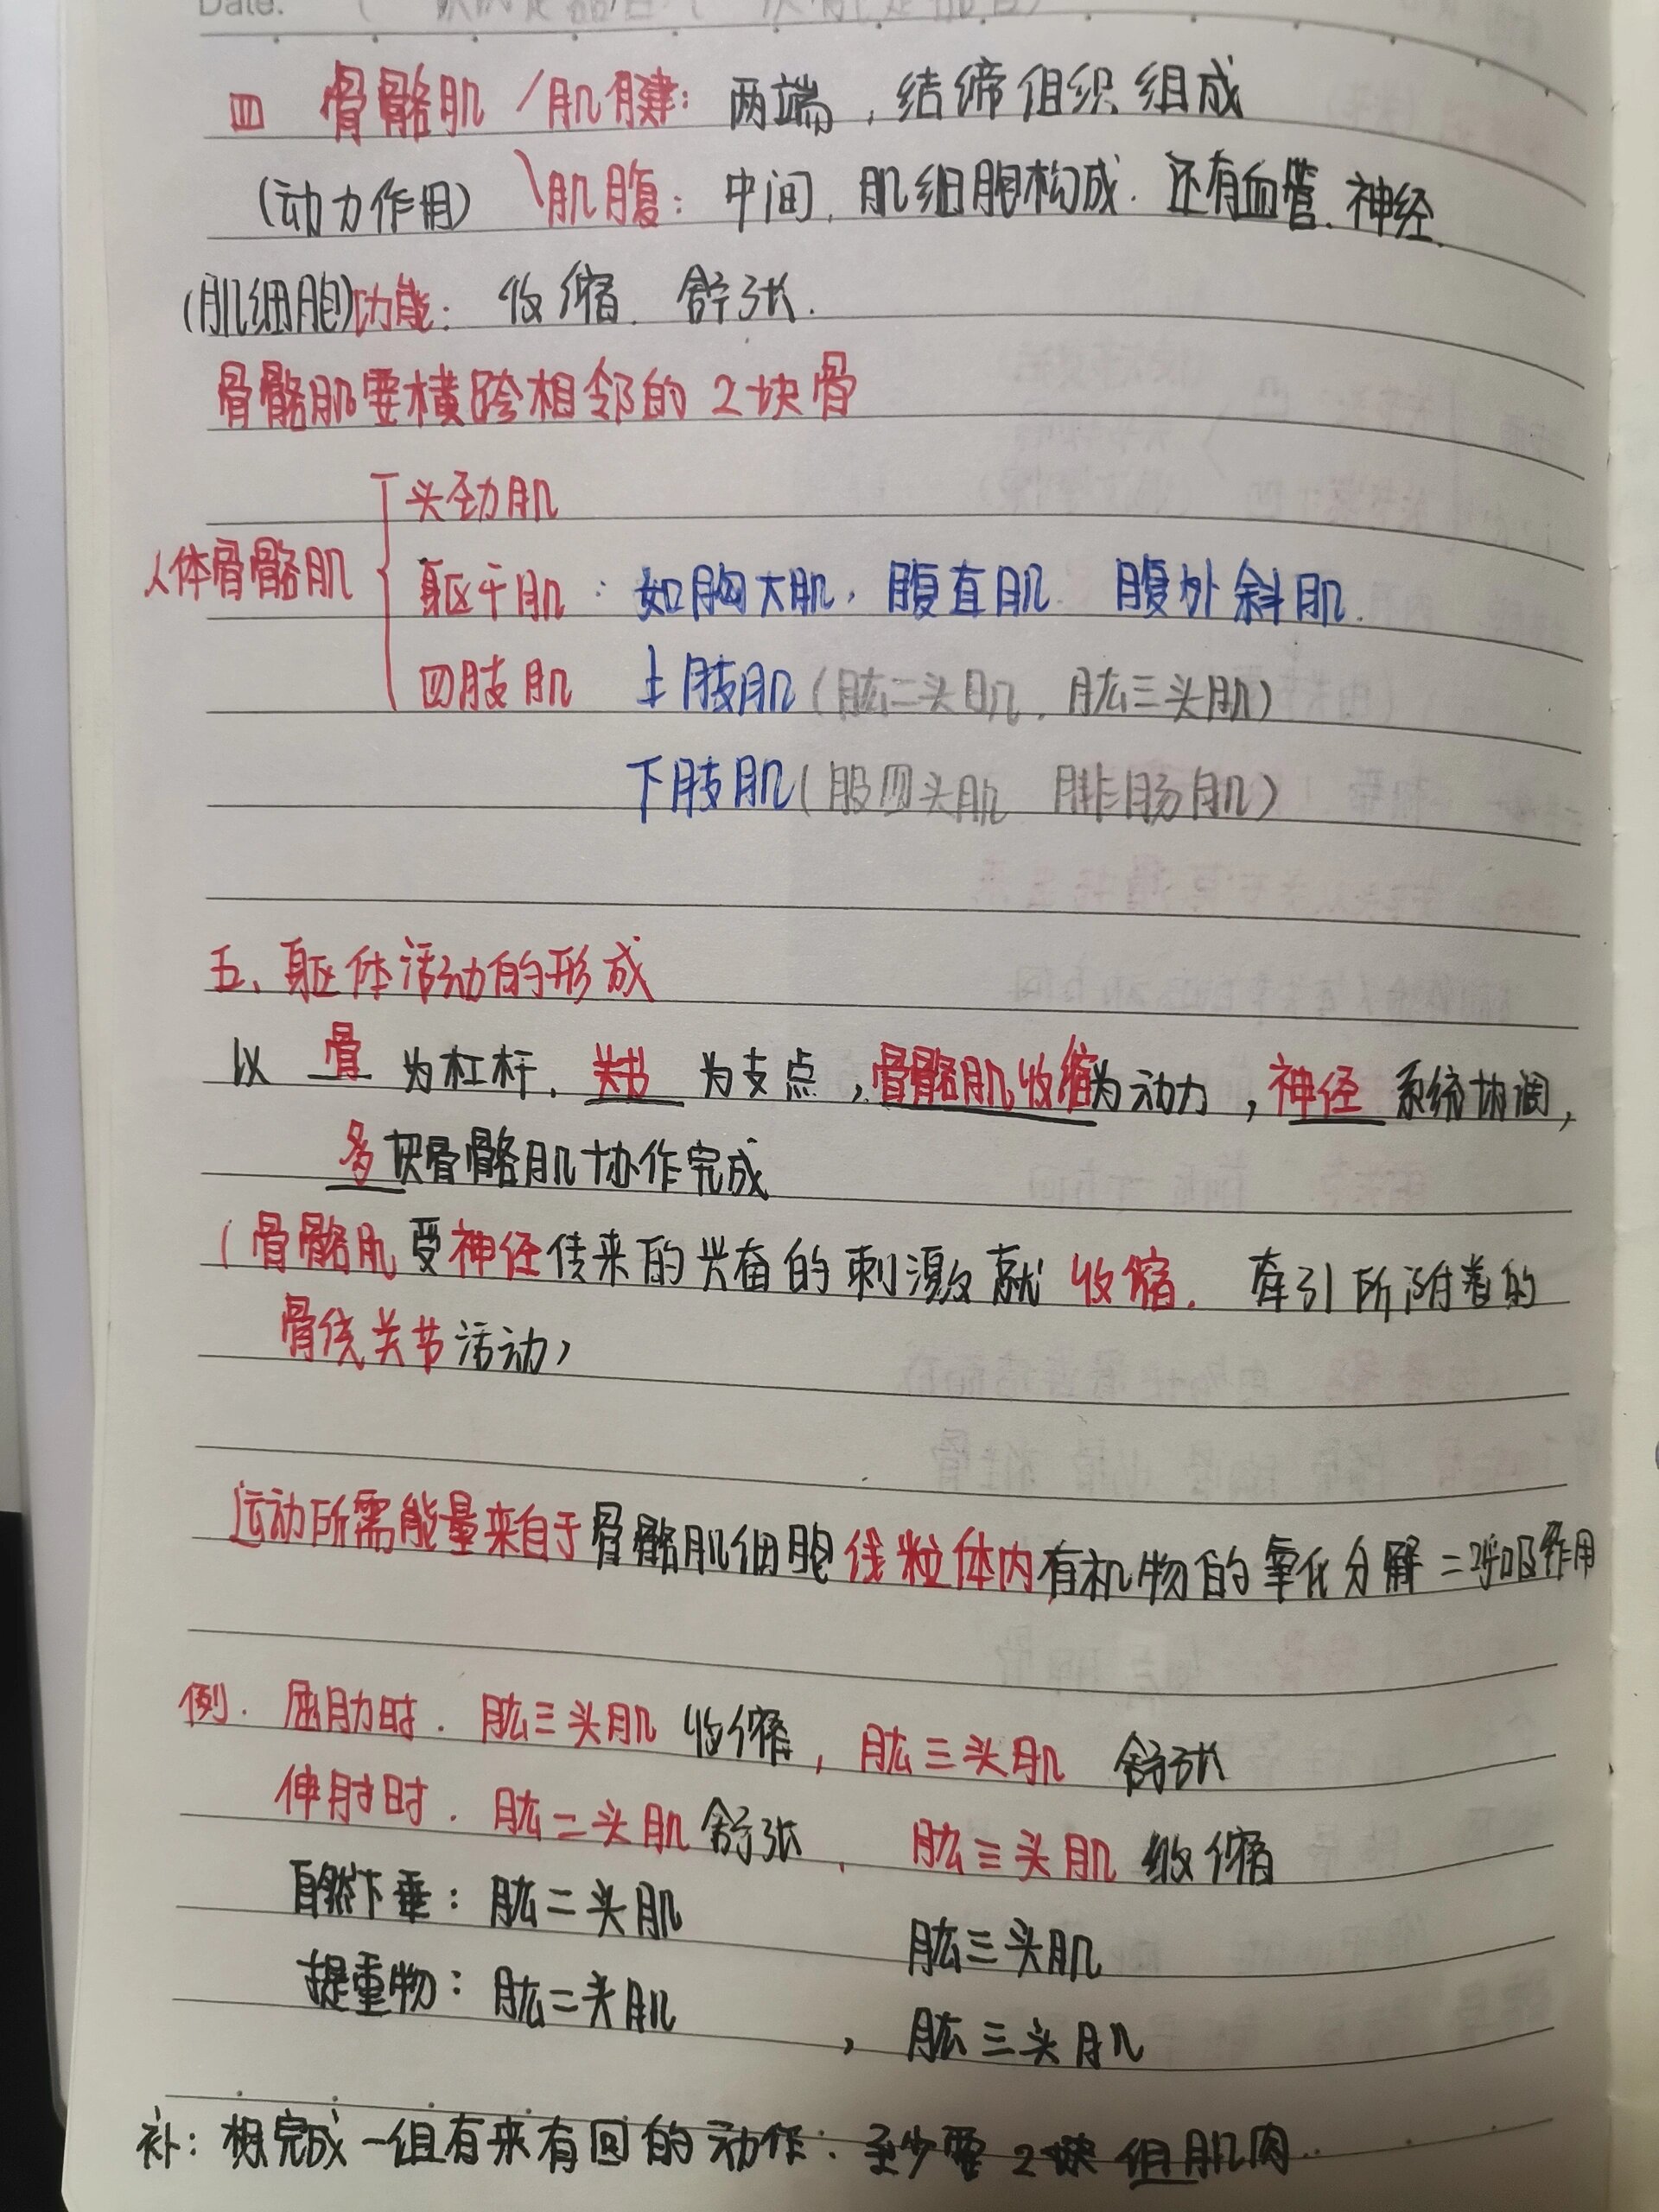 Date:
四 骨骼肌 / 肌腱: 两端,结缔组织组成
(动力作用) \肌腹: 中间,肌细胞构成.还有血管.神经.
(肌细胞)功能: 收缩.舒张.
骨骼肌要横跨相邻的2块骨
头劲肌
人体骨骼肌
躯干肌:如胸大肌,腹直肌 腹外斜肌.
四肢肌 上肢肌(肱二头肌,肱三头肌)
下肢肌(股四头肌 腓肠肌)
五、躯体活动的形成
以 骨 为杠杆,关节 为支点,骨骼肌收缩为动力,神经 系统协调,
多块骨骼肌协作完成
(骨骼肌受神经传来的兴奋的刺激就收缩.牵引所附着的
骨绕关节活动)
运动所需能量来自于骨骼肌细胞线粒体内有机物的氧化分解=呼吸作用
例.屈肋时.肱三头肌 收缩,肱三头肌 舒张
伸肘时.肱二头肌舒张,肱三头肌 收缩
自然下垂:肱二头肌 肱三头肌
提重物:肱二头肌,肱三头肌
补:想完成一组有来有回的动作:至少要2组肌肉.